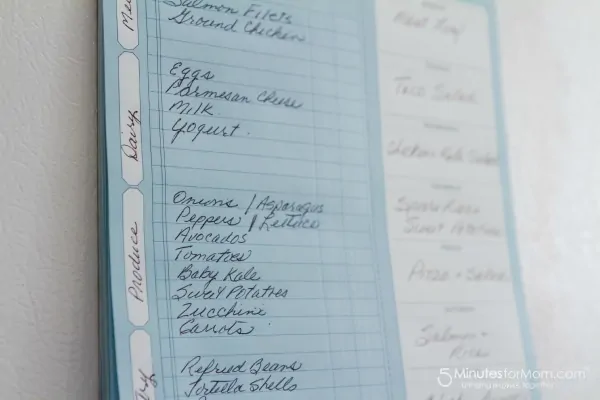 Meat
Salmon Filets
Ground Chicken
Dairy
Eggs
Parmesan Cheese
Milk
Yogurt
Produce
Onions / Asparagus
Peppers / Lettuce
Avocados
Tomatoes
Baby Kale
Sweet Potatoes
Zucchini
Carrots
Refried Beans
Tortela Shells
Taco Salad
Chicken Kale
Sweet Potatoes
Pizza + Salad
Salmon +
Rice
5 MinutesforMom.com
bringing moms together